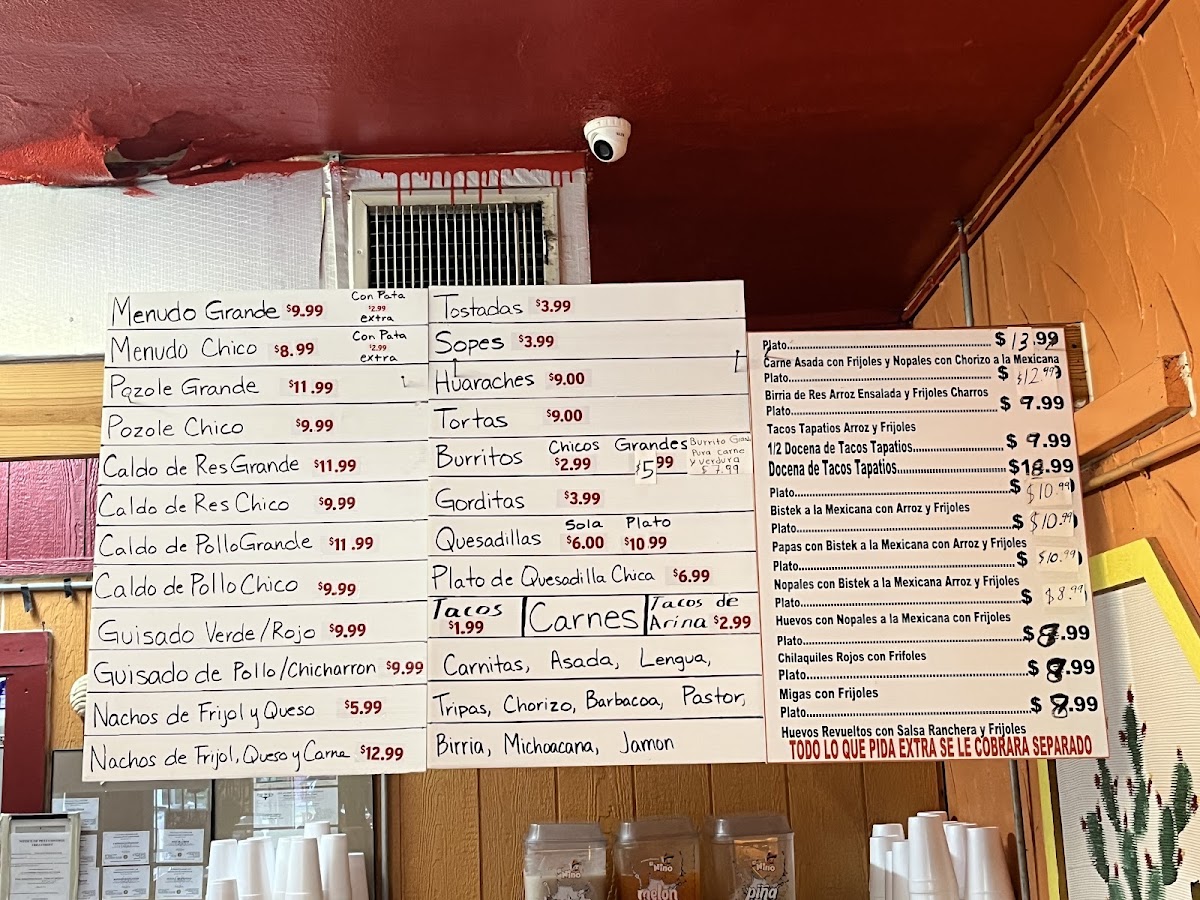 Menudo Grande $9.99 Con Pata $2.99 extra
Menudo Chico $8.99 Con Pata $2.99 extra
Pozole Grande $11.99
Pozole Chico $9.99
Caldo de Res Grande $11.99
Caldo de Res Chico $9.99
Caldo de Pollo Grande $11.99
Caldo de Pollo Chico $9.99
Guisado Verde/Rojo $9.99
Guisado de Pollo/Chicharron $9.99
Nachos de Frijol y Queso $5.99
Nachos de Frijol, Queso y Carne $12.99
Tostadas $3.99
Sopes $3.99
Huaraches $9.00
Tortas $9.00
Burritos Chicos $2.99 Grandes $5.99
Burrito Grande
Pura carne
y verdura
$7.99
Gorditas $3.99
Quesadillas Sola $6.00 Plato $10.99
Plato de Quesadilla Chica $6.99
Tacos $1.99 Carnes Tacos de Arina $2.99
Carnitas, Asada, Lengua,
Tripas, Chorizo, Barbacoa, Pastor,
Birria, Michoacana, Jamon
Plato $13.99
Carne Asada con Frijoles y Nopales con Chorizo a la Mexicana
Plato $12.99
Birria de Res Arroz Ensalada y Frijoles Charros
Plato $9.99
Tacos Tapatios Arroz y Frijoles
1/2 Docena de Tacos Tapatios $9.99
Docena de Tacos Tapatios $18.99
Plato $10.99
Bistek a la Mexicana con Arroz y Frijoles
Plato $10.99
Papas con Bistek a la Mexicana con Arroz y Frijoles
Plato $10.99
Nopales con Bistek a la Mexicana Arroz y Frijoles
Plato $8.99
Huevos con Nopales a la Mexicana con Frijoles
Plato $8.99
Chilaquiles Rojos con Frifoles
Plato $8.99
Migas con Frijoles
Plato $8.99
Huevos Revueltos con Salsa Ranchera y Frijoles
TODO LO QUE PIDA EXTRA SE LE COBRARA SEPARADO
melon
piña